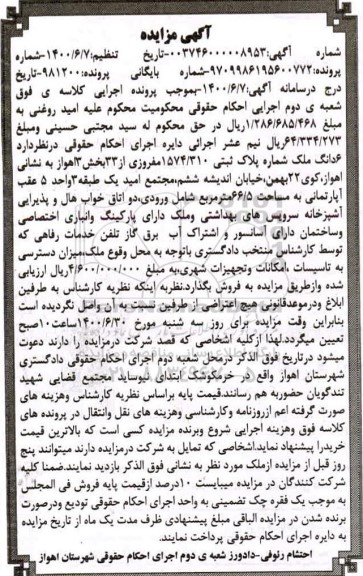 آگهی مزایده
شماره آگهی:۰۰۳۷۴۶۰۰۰۰۰۸۹۵۳-تاریخ تنظیم:۱۴۰۰/۶/۷-شماره
پرونده:۹۷۰۹۹۸۶۱۹۵۶۰۰۷۷۲-شماره بایگانی پرونده:۹۸۱۲۰۰-تاریخ
درج درسامانه آگهی:۱۴۰۰/۶/۷-بموجب پرونده اجرایی کلاسه ی فوق
شعبه ی دوم اجرایی احکام حقوقی محکومیت محکوم علیه امید روغنی به
مبلغ ۱/۲۸۶/۶۸۵/۴۶۸ریال در حق محکوم له سید مجتبی حسینی ومبلغ
۶۴/۳۳۴/۲۷۳ریال نیم عشر اجرائی دایره اجرای احکام حقوقی درنظردارد
۶دانگ ملک شماره پلاک ثبتی ۱۵۷۴/۳۱۰مفروزی از۳۳بخش۳اهواز به نشانی
اهواز،کوی۲۲بهمن،خیابان اندیشه ششم،مجتمع امید یک طبقه۳واحد ۵ عقب
آپارتمانی به مساحت۶۶/۰۵مترمربع شامل ورودی،دو اتاق خواب هال و پذیرایی
آشپزخانه سرویس های بهداشتی وملک دارای پارکینگ وانباری اختصاصی
وساختمان دارای آسانسور و اشتراک آب برق گاز تلفن خدمات رفاهی که
توسط کارشناس منتخب دادگستری باتوجه به محل وقوع ملک،میزان دسترسی
به تاسیسات ،امکانات وتجهیزات شهری،به مبلغ ۴/۶۰۰/۰۰۰/۰۰۰ریال ارزیابی
شده وازطریق مزایده به فروش بگذارد.نظربه اینکه نظریه کارشناس به طرفین
ابلاغ ودرموعدقانونی هیچ اعتراضی از طرفین نسبت به آن واصل نگردیده است
بنابراین وقت مزایده برای روز سه شنبه مورخ ۱۴۰۰/۶/۳۰ساعت۱۰صبح
تعیین میگردد.لهذا ازکلیه اشخاصی که قصد شرکت درمزایده را دارند دعوت
میشود درتاریخ فوق الذکر درمحل شعبه دوم اجرای احکام حقوقی دادگستری
شهرستان اهواز واقع در خرمکوشک ابتدای نیوساید مجتمع قضایی شهید
تندگویان حضوربه هم رسانند.قیمت پایه براساس نظریه کارشناس وهزینه های
صورت گرفته اعم ازروزنامه وکارشناسی وهزینه های نقل وانتقال در پرونده های
کلاسه فوق وهزینه اجرایی شروع وبرنده مزایده کسی است که بالاترین قیمت
خریدرا پیشنهاد نماید.اشخاصی که تمایل به شرکت درمزایده دارند میتوانند پنج
روز قبل از مزایده ازملک مورد نظر به نشانی فوق الذکر بازدید نمایند.ضمنا کلیه
شرکت کنندگان در مزایده میبایست ۱۰درصد ازقیمت پایه فروش فی المجلس
به موجب یک فقره چک تضمینی به واحد اجرای احکام حقوقی تودیع ودرصورت
برنده شدن در مزایده الباقی مبلغ پیشنهادی ظرف مدت یک ماه از تاریخ مزایده
به دایره اجرای احکام حقوقی پرداخت نمایند.
احتشام رئوفی-دادورز شعبه ی دوم اجرای احکام حقوقی شهرستان اهواز